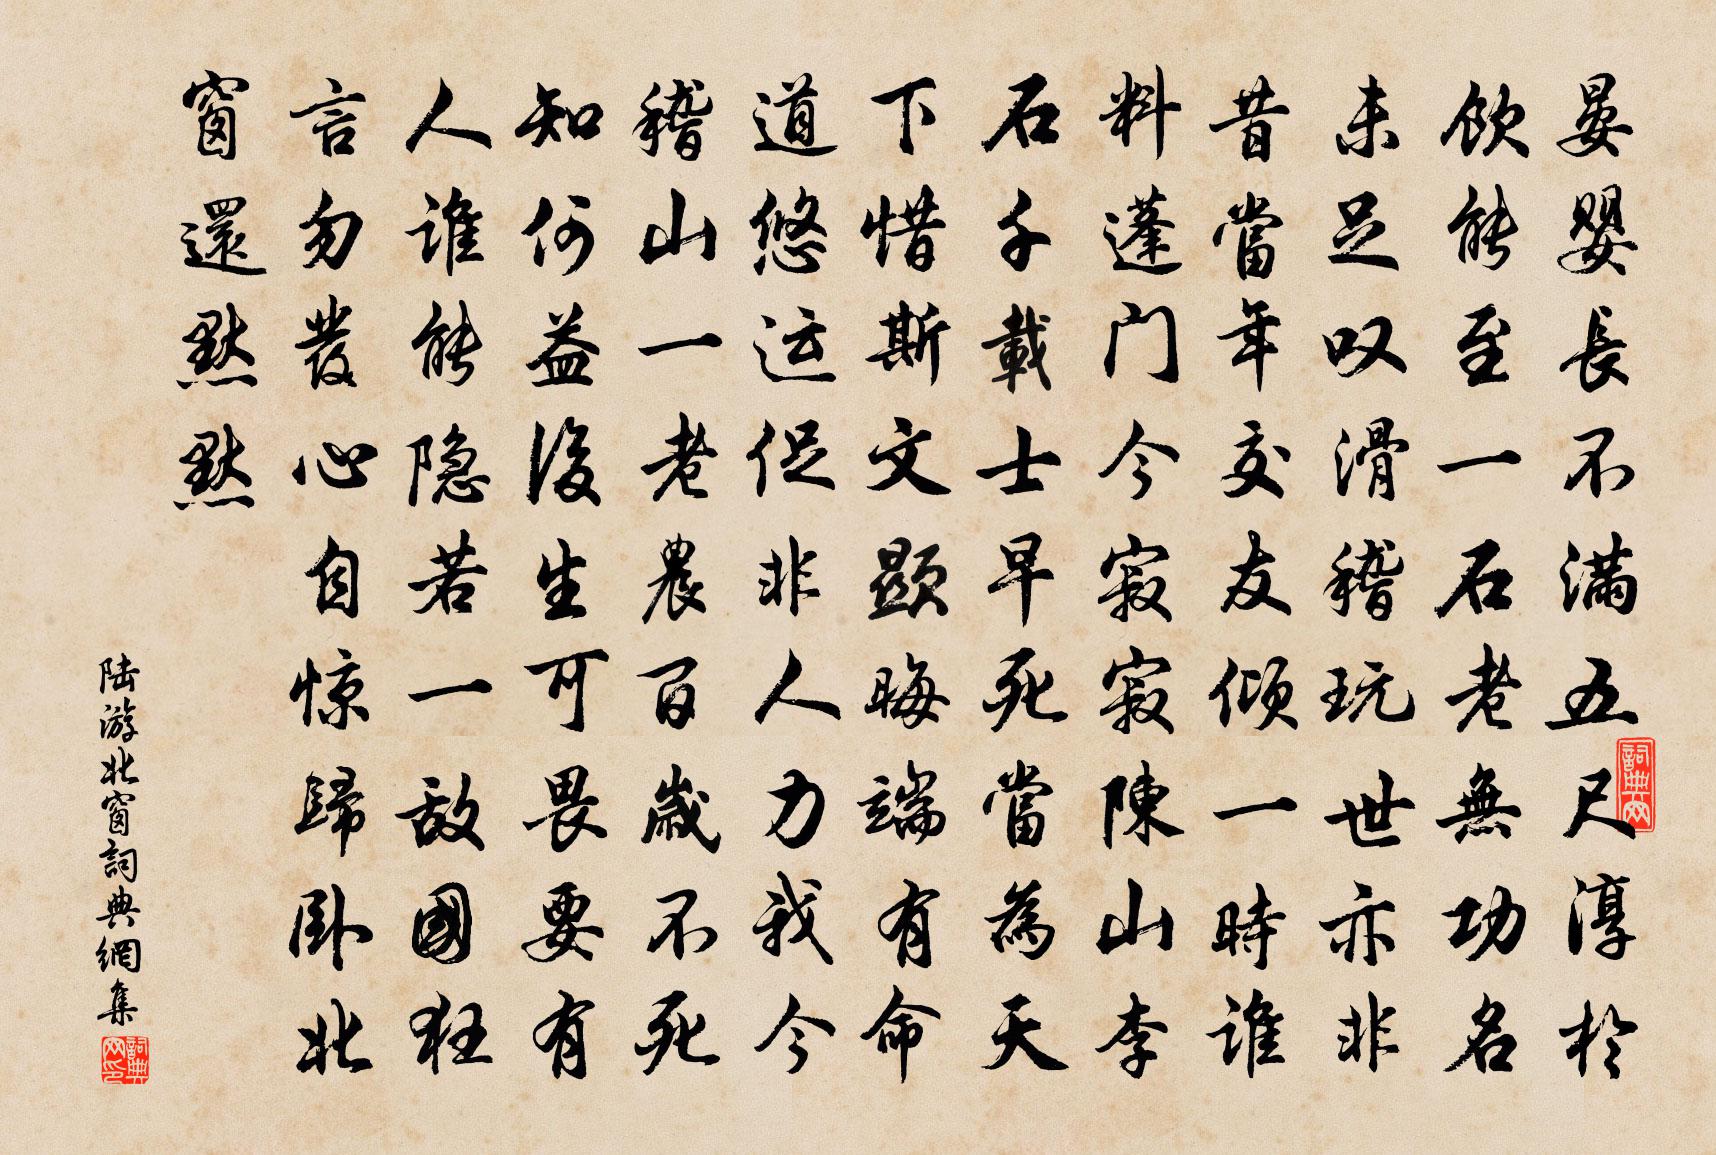 晏嬰長不滿五尺淳於
飲能至一石老無功名
未足叹滑稽玩世亦非
昔當年交友傾一時誰
料蓬门今寂寂陳山李
石千載士早死當為天
下惜斯文顯晦端有命
道悠运促非人力我今
稽山一老農百歲不死
知何益後生可畏要有
人誰能隐若一敌國狂
言勿發心自惊歸卧北
窗還默默
陆游北窗詞典網集
詞典网
詞典网印